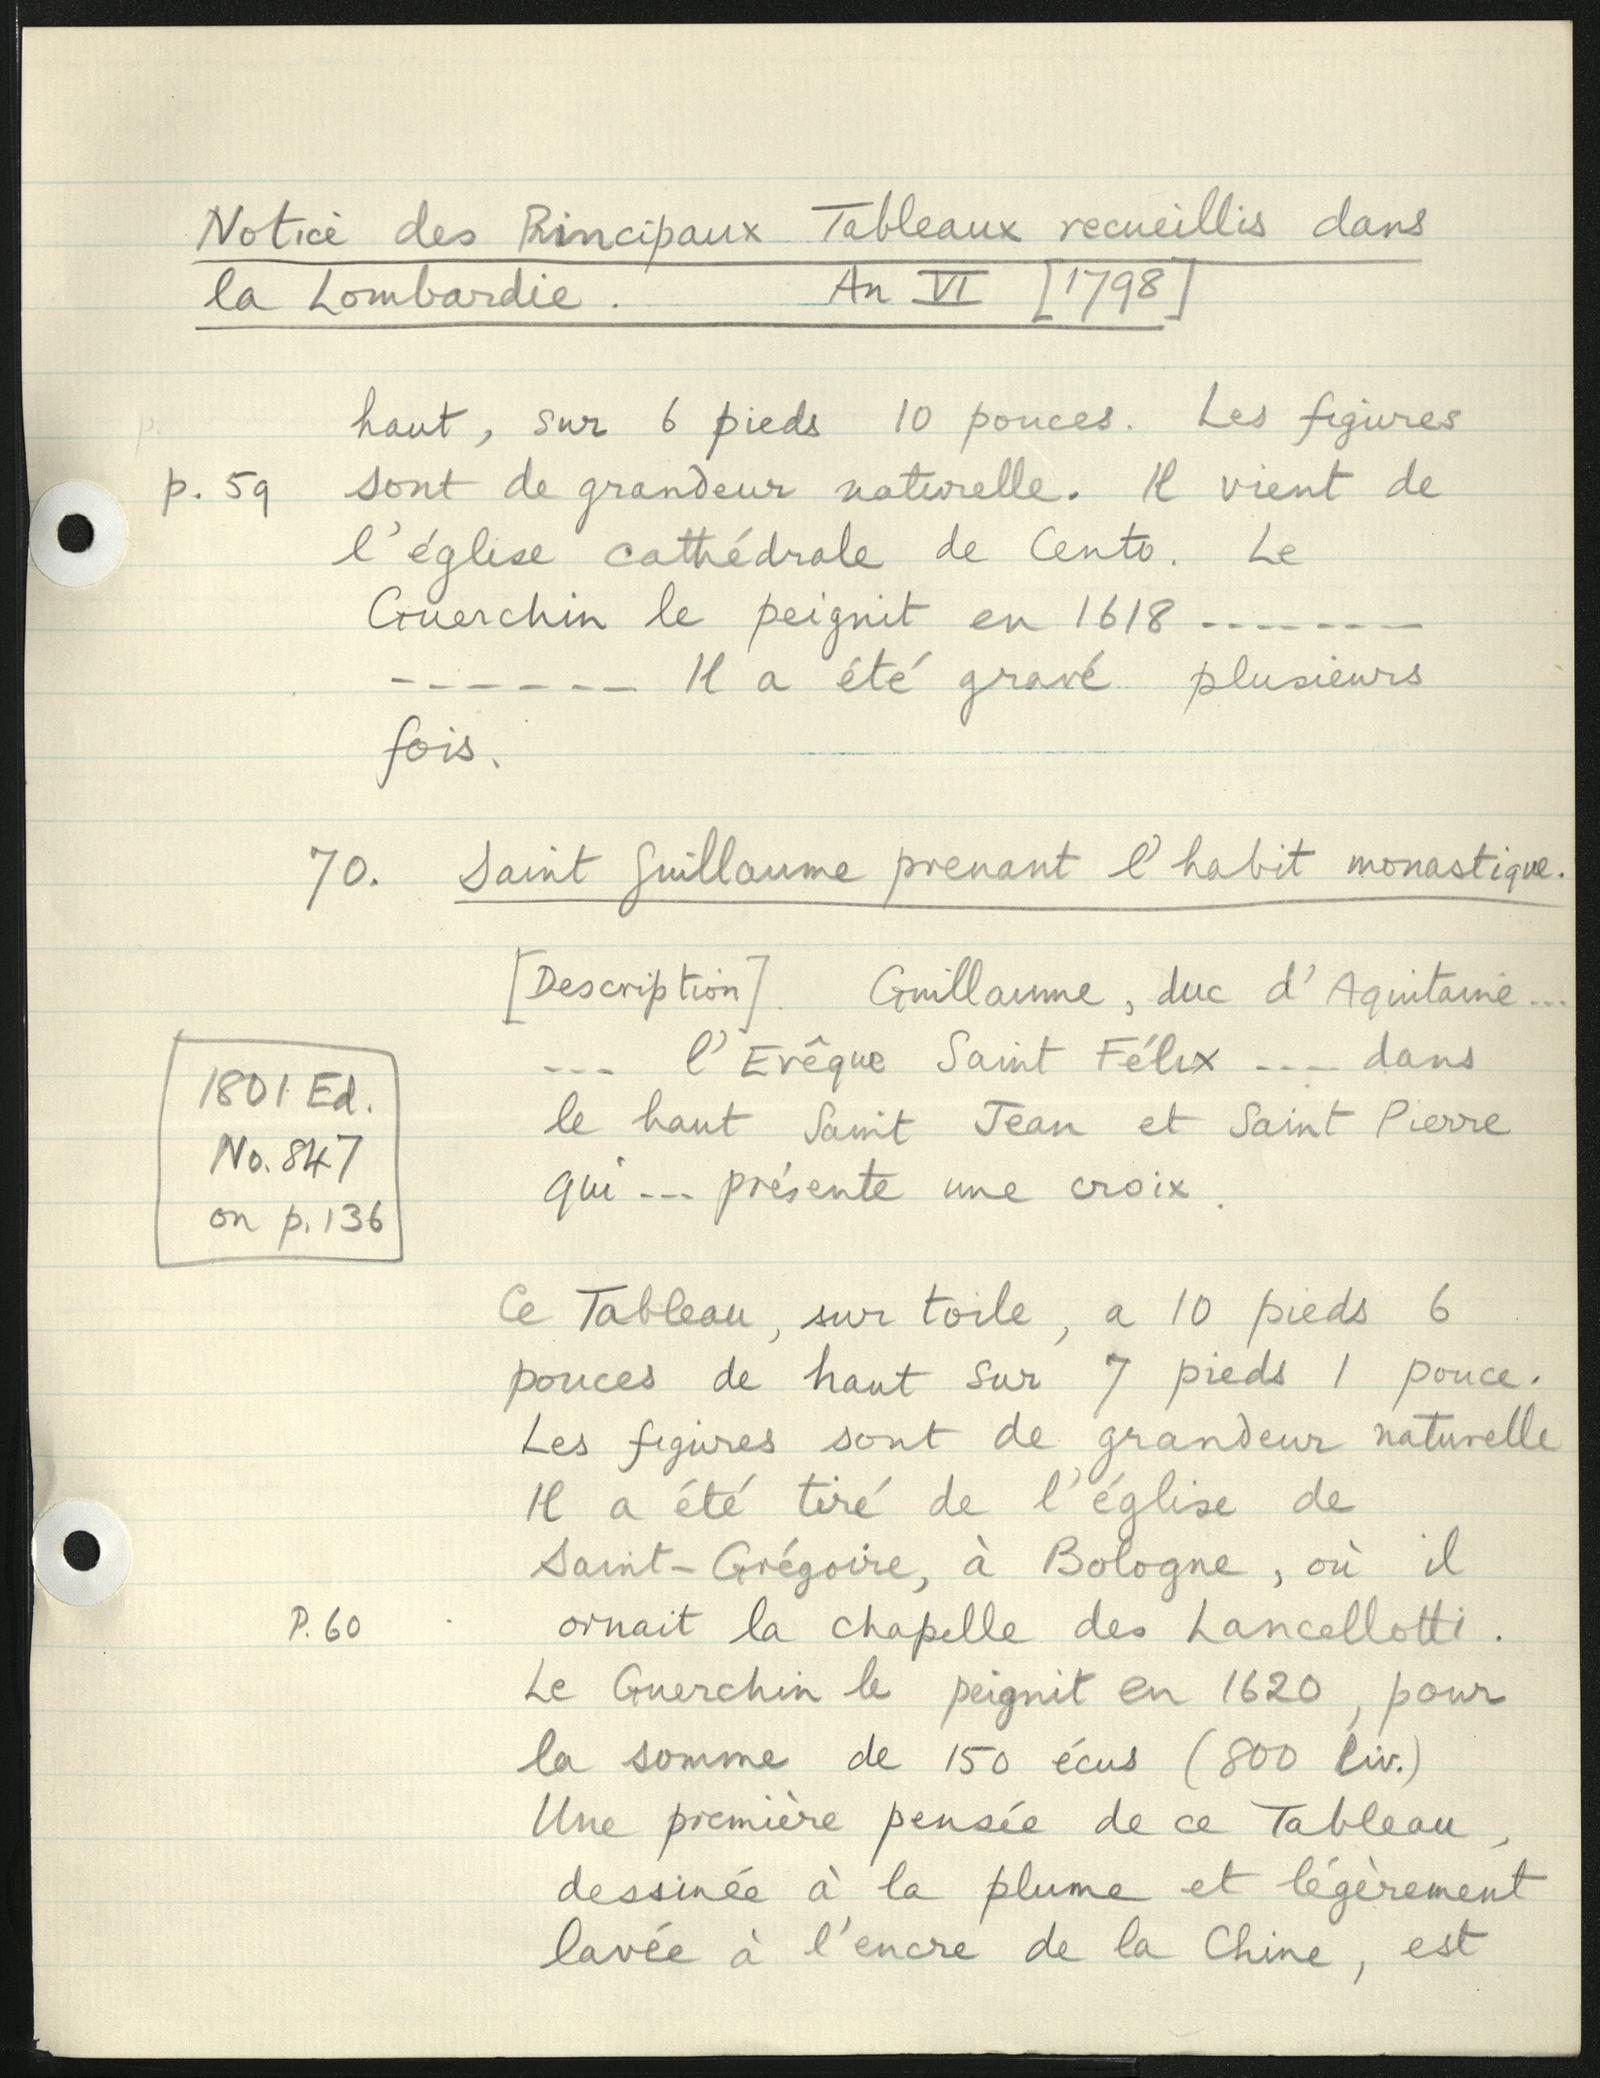 Notice des Principaux Tableaux recueillis dans
la Lombardie. An VI [1798]
p.
haut, sur 6 pieds 10 pouces. Les figures
p. 59 sont de grandeur naturelle. Il vient de
l'église cathédrale de Cento. Le
Guerchin le peignit en 1618 -------
------ Il a été gravé plusieurs
fois.
70. Saint Guillaume prenant l'habit monastique.
[Description] Guillaume, duc d'Aquitaine ...
--- l'Evêque Saint Félix ---- dans
le haut Saint Jean et Saint Pierre
qui --- présente une croix.
1801 Ed.
No. 847
on p. 136
Ce Tableau, sur toile, a 10 pieds 6
pouces de haut sur 7 pieds 1 pouce.
Les figures sont de grandeur naturelle
Il a été tiré de l'église de
Saint-Grégoire, à Bologne, où il
P. 60 ornait la chapelle des Lancellotti.
Le Guerchin le peignit en 1620, pour
la somme de 150 écus (800 Liv.)
Une première pensée de ce Tableau,
dessinée à la plume et légèrement
lavée à l'encre de la Chine, est